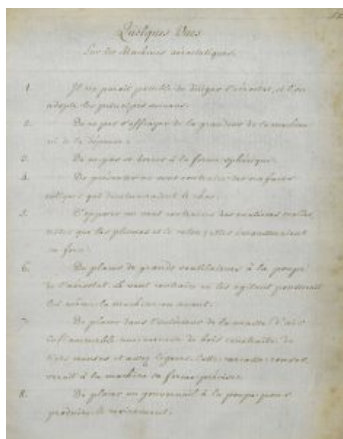 Quelques Vues
Sur les Machines aérostatiques.
1. Il me paroît possible de diriger l'aérostat, si l'on
adopte les principes suivans.
2. De ne pas s'effrayer de la grandeur de la machine
ni de la dépense.
3. De ne pas se borner à la forme sphérique.
4. De présenter au vent contraire des surfaces
obliques qui
5. D'opposer au vent contraire des matières molles,
telles que les plumes et le coton; elles
sa force.
6. De placer de grands ventilateurs à la poupe
de l'aérostat. Le vent contraire en les agitant
lui même la machine en avant.
7. De placer dans l'intérieur de la masse d'air
inflammable une carcasse de bois construite de
minces et assez légères. Cette carcasse
à la machine sa forme précise.
8. De placer un gouvernail à la poupe pour
produire le mouvement.